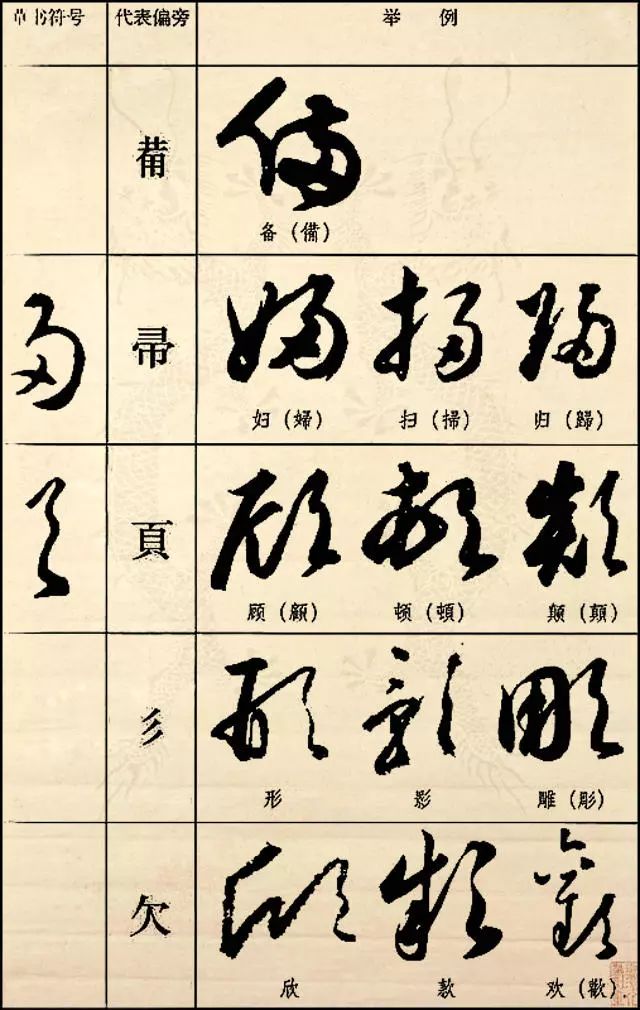 草书符号 代表偏旁 举例
𤰇
备（備）
帚
妇（婦） 扫（掃） 归（歸）
頁
顾（顧） 顿（頓） 颠（顛）
彡
形 影 雕（彫）
欠
欣 款 欢（歡）